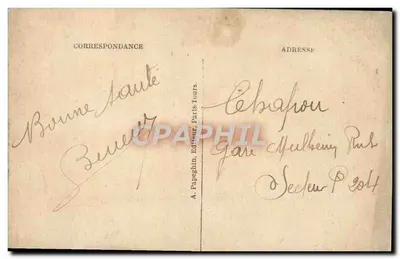 CORRESPONDANCE
ADRESSE
Bonne Santé
A. Papeghin, Editeur, Paris-Tours.
CPAPHIL
Gare Mulheim
Secteur P 204